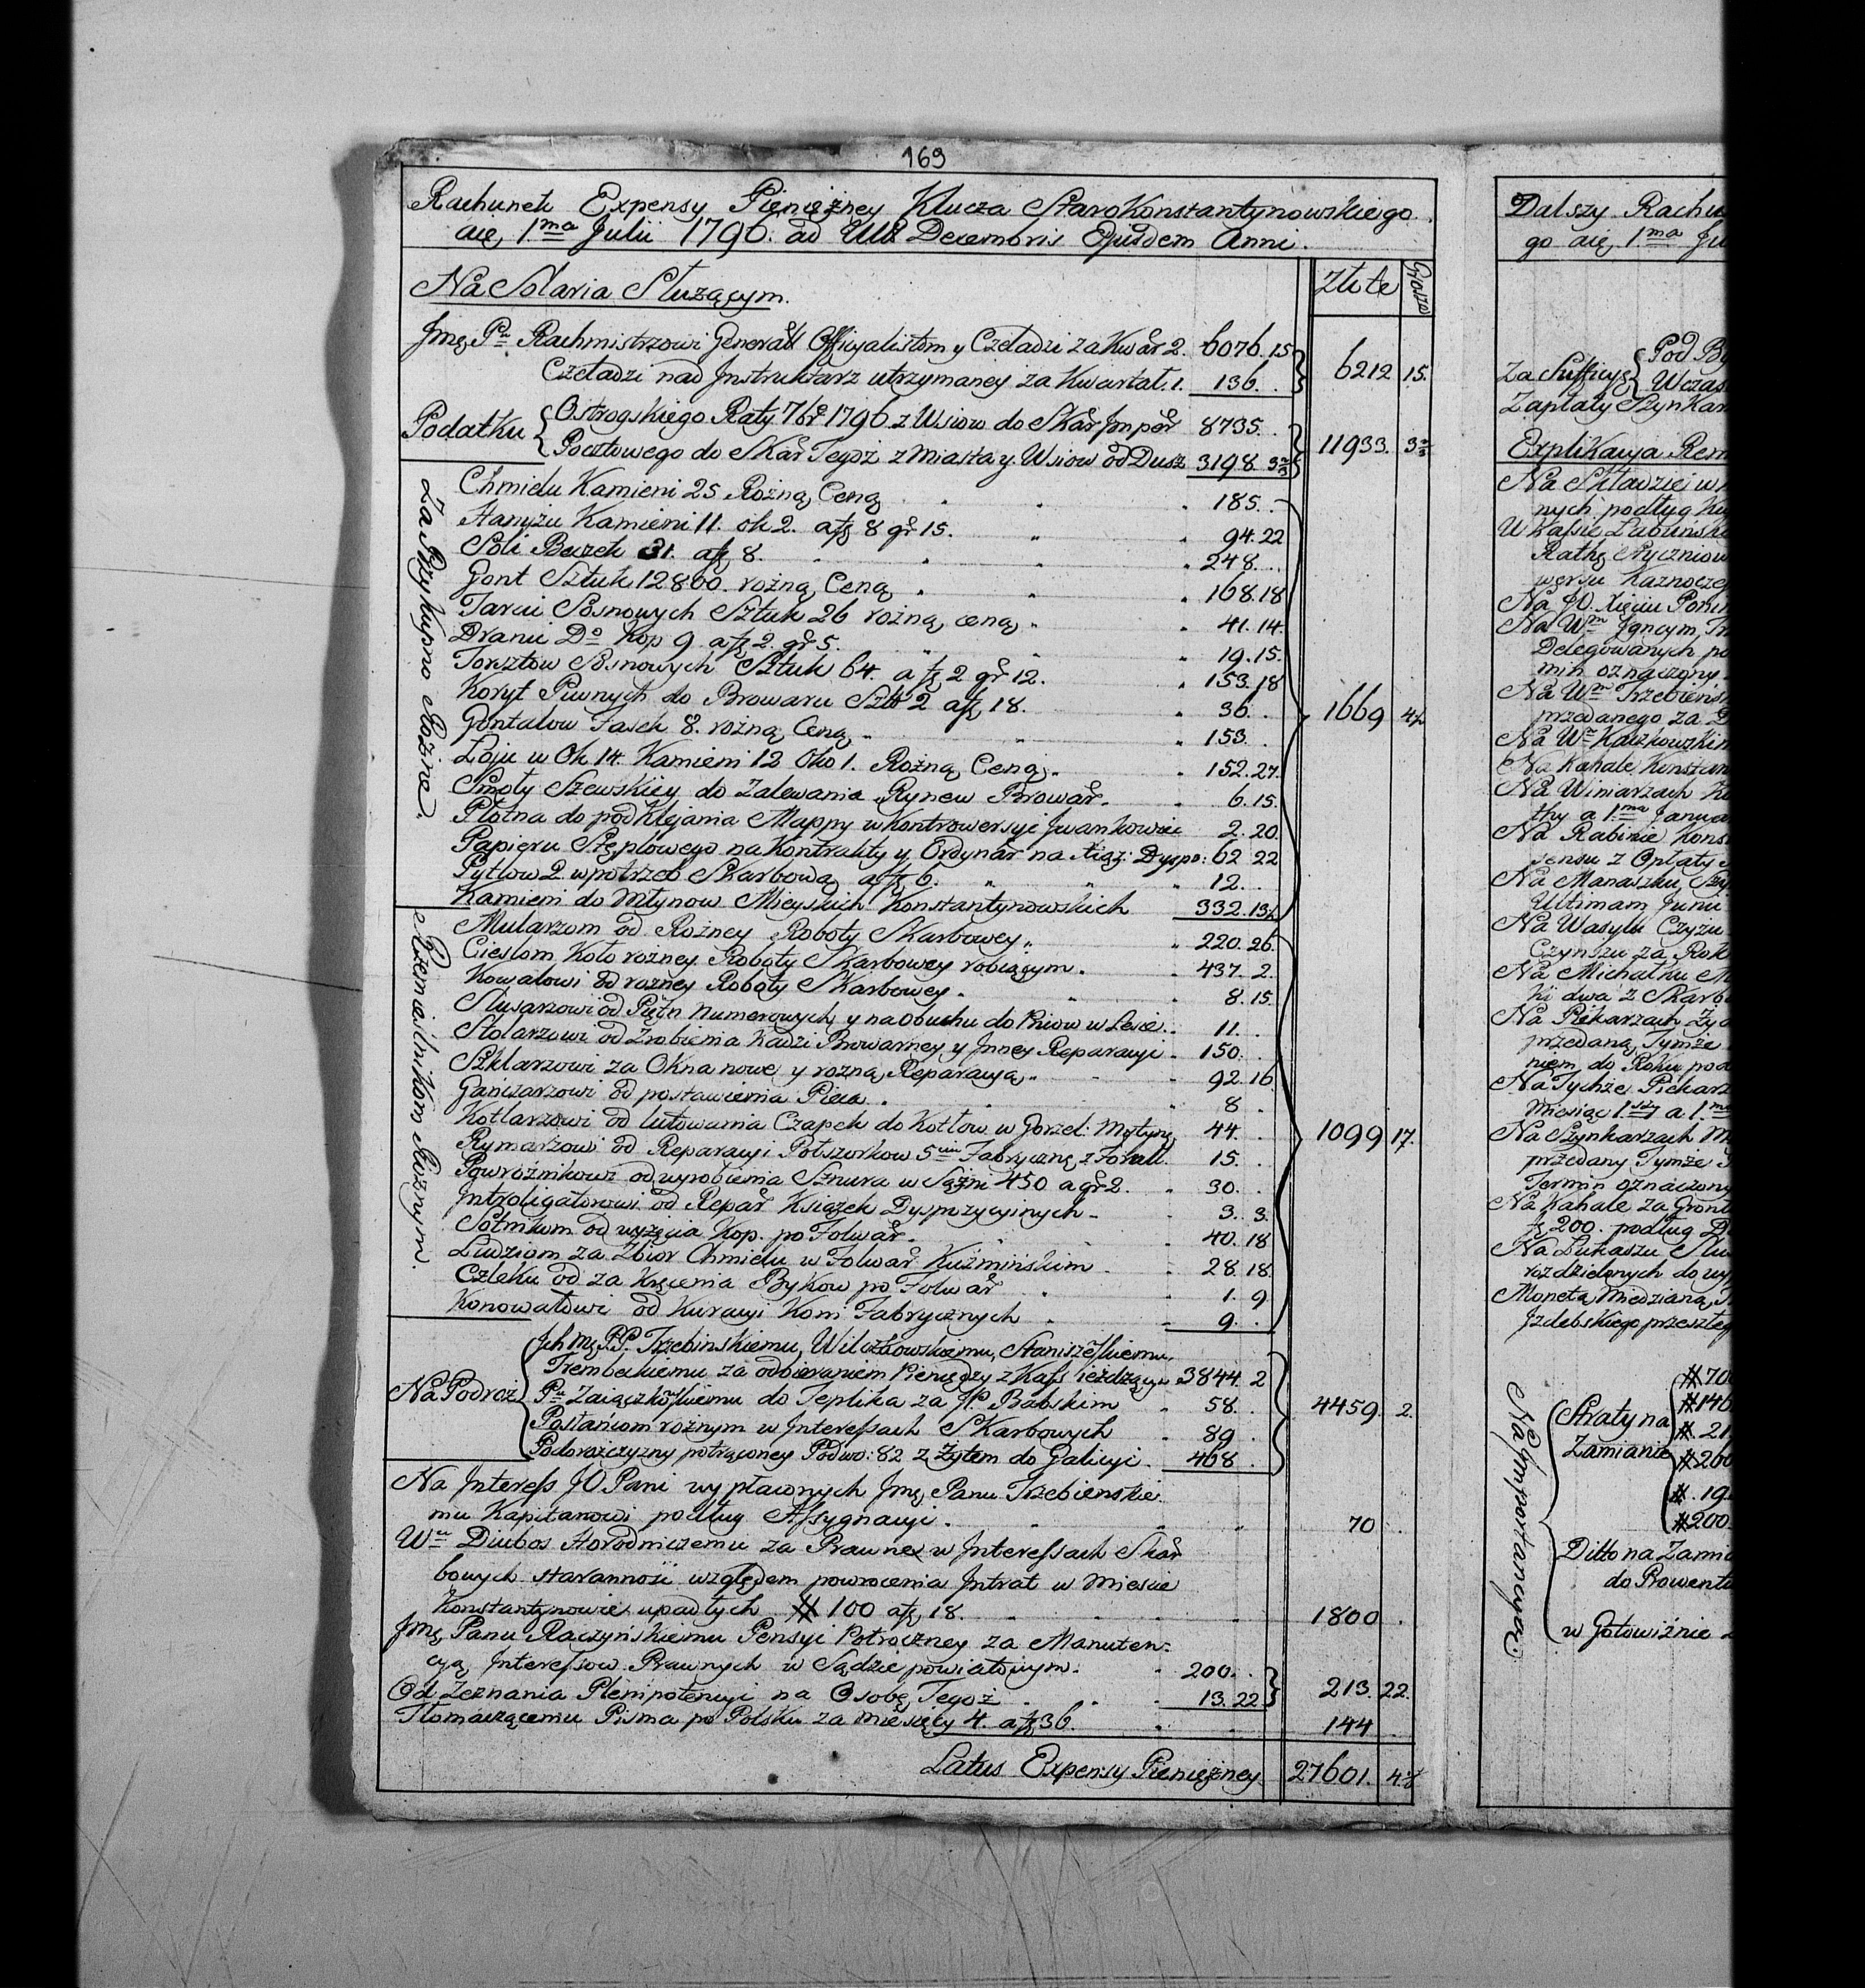 169
Rachunek Expensy Pieniężney Klucza StaroKonstantynowskiego
aię 1ma Julii 1796. ad Ult Decembris Ejusdem Anni.
Złote Grosze
Na Solaria Służącym.
Jmę Pu Rachmistrzowi Generall Officyalistom y Czeladzi za Kwar 2. 6076. 15
Czeladzi nad Jnstruktarz utrzymaney za Kwartał 1. 136. . 6212 15.
Podatku Ostrogskiego Raty 7br 1796 z Wsiow do Skar Jmper 8735. .
Pocztowego do Skar Tegoż z Miasta y Wsiow od Dusz 3198 3 2/3 11933. 3 2/3
Za Przykupno Rożne.
Chmielu Kamieni 25 Rożną Ceną 185. .
Hanyżu Kamieni 11. ok 2. a fz 8 gr 15. 94. 22
Soli Beczek 31. a fz 8. 248. .
Gont Sztuk 12800. rożną Ceną 168. 18
Tarcic Sosnowych Sztuk 26 rożną ceną 41. 14.
Dranic Do Kop 9 a fz 2. gr 5. 19. 15.
Torsztow Sosnowych Sztuk 64. a fz 2 gr 12. 153. 18
Koryt Piwnych do Browaru Sztk 2 a fz 18. 36. .
Gontalow Fasek 8. rożną Ceną 153. .
Łoju w Ok 14. Kamieni 12 Oko 1. Rożną Ceną 152. 27.
Smoły Szewskiey do Zalewania Rynew Browar. 6. 15.
Płotna do podklejania Mappy w Kontrowersyi Jwankowiec 2. 20.
Papieru Stęplowego na Kontrakty y Ordynar na Xiąż: Dyspo: 62 22
Pytlow 2 w potrzeb Skarbową a fz 6. 12. .
Kamieni do Młynow Mieyskich Konstantynowskich 332. 13 1/2
1669 4 1/2
Rzemieslnikom Rożnym.
Mularzom od Rożney Roboty Skarbowey 220. 26.
Cieslom Koło rożney Roboty Skarbowey robiącym. 437. 2.
Kowalowi od rożney Roboty Skarbowey. 8. 15.
Slusarzowi od Piętn Numerowych y na obuchu do Pniow w Lesie. 11. .
Stolarzowi od Zrobienia Kadzi Browarney y Jnney Reparacyi 150. .
Szklarzowi za Okna nowe y rożną Reparacyą 92. 16.
Gancarzowi od postawienia Pieca. 8 .
Kotlarzowi od lutowania Czapek do Kotłow w Gorzel: 44. .
Rymarzowi od Reparacyi Połszorkow 5 15. .
Powroźnikowi od wyrobienia Sznura w Sążni 450 a gr 2. 30. .
Jntroligatorowi od Repar Książek Dyspozycyinych 3. 3.
Sotnikom od wyżęcia Kop. po Folwar. 40. 18
Ludziom za Zbior Chmielu w Folwar Kuźmińskim 28. 18.
Człeku od za Kręcenia Bykow po Folwar 1. 9
Konowałowi od Kuracyi Koni Fabrycznych 9. .
1099 17.
Na Podroż
Jch Mę PP. Trzebinskiemu, Wilczkowskiemu, Staniszewskiemu,
Trembeckiemu za odbieraniem Pieniędzy z Kass ieżdżącym 3844. 2
Pu Zaiączkowskiemu do Teplika za JP. Babskim 58. .
Posłańcom rożnym w Jnteressach Skarbowych 89 .
Podorożczyzny potrąconey Podwo: 82 z Żytem do Galicyi. 468 .
4459. 2.
Na Jnteress JO Pani wypłaconych Jmę Panu Trzebienskie
mu Kapitanowi podług Assygnacyi. 70 .
Wu Diubos Horodniczemu za Prawne w Jnteressach Skar
bowych staranności względem powrocenia Jntrat w Miescie
Konstantynowie upadłych # 100 a fz 18. 1800 .
Jmę Panu Raczyńskiemu Pensyi Połroczney za Manuten=
cyą Jnteressow Prawnych w Sądzie powiatowym. 200. .
Od Zeznania Plenipotencyi na Osobę Tegoż 13. 22 213. 22.
Tłomaczącemu Pisma po Polsku za miesięcy 4. a fz 36. 144 .
Latus Expensy Pieniężney 27601. 4 1/6
Dalszy Rachu
go aię 1.ma Ju
Pod By
Wczas
Zapłaty Szynkar
Explikacya Rem
Na Składzie w
nych podług
W Kassie Łabuńsk
Rathę Styczniow
Na JO. Xięciu Ponin
Delegowanych po
min oznaczony
Na Wm Trzebieńsk
przedanego za
Na Kahale Konstan
Na Winiarzach
thy a 1.ma Janua
Na Rabinie Kons
sensu z Opłaty
Na Manaszku
Ultimam Junii
Na Wasylu Czyżu
Czynszu za Rok
Na Michałku
ki dwa z Skarb
Na Piekarzach Zyd
przedaną Tymże
niem do Roku pod
Na Tychże Piekarz
Miesiąc 1szy a 1.ma
Na Szynkarzach M
przedany Tymże
Termin oznaczony
Na Kahale za Gront
fz 200. podług
Na Łukaszu
rozdzielonych do wy
Monetą Miedzianą
Jzdebskiego przeszłeg
Na Jmportancyą.
Straty na
Zamianie
# 700
# 146
# 21
# 260
# 19
# 200
Ditto na Zamia
do Prowent
w Gotowiźnie